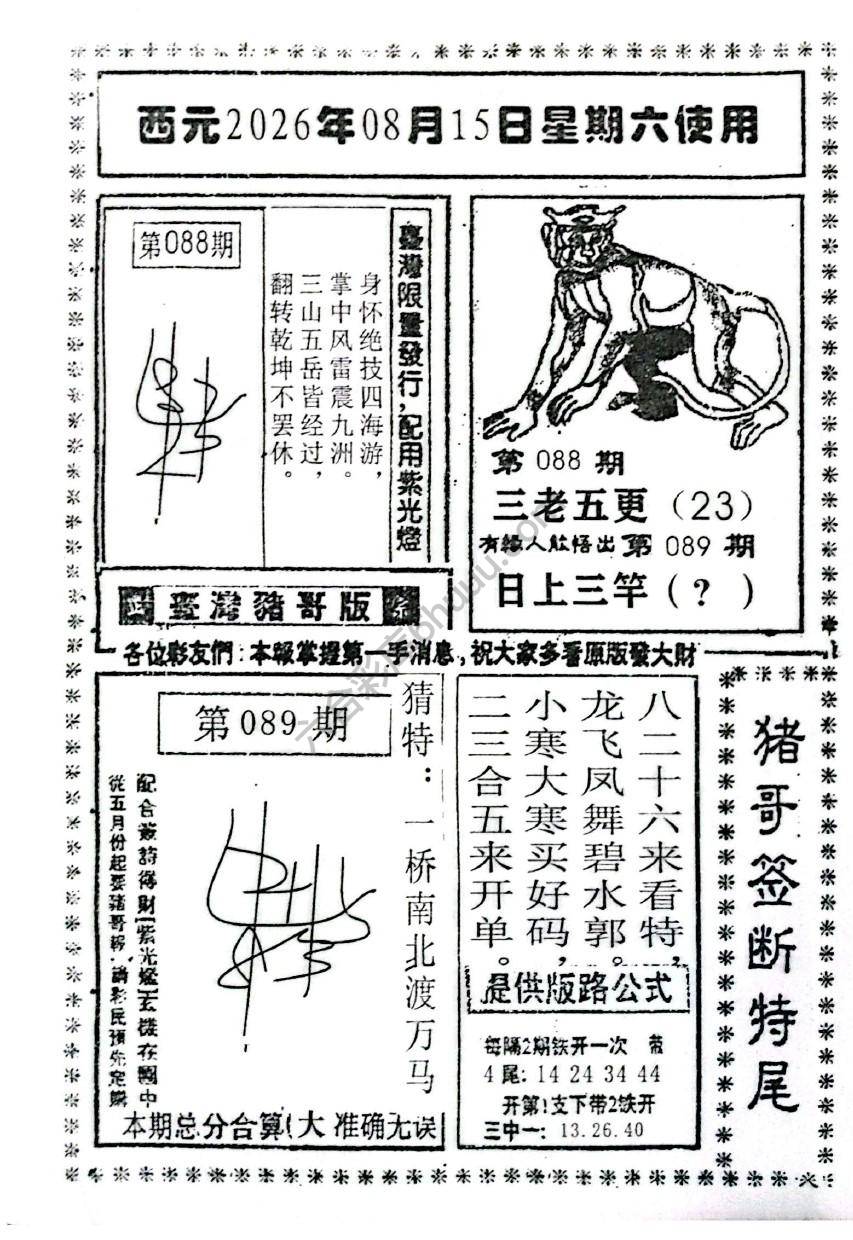 西元2026年08月15日星期六使用
第088期
身怀绝技四海游，
掌中风雷震九洲。
三山五岳皆经过，
翻转乾坤不罢休。
臺灣限量發行，配用紫光燈
臺灣豬哥版
第 088 期
三老五更（23）
有緣人能悟出 第 089 期
日上三竿（？）
各位彩友們：本報掌握第一手消息，祝大家多看原版發大財
第 089 期
猜特：一桥南北渡万马
配合叢詩得財[紫光燈]玄機在圖中
從五月份起要豬哥報，請彩民預先定購
本期总分合算(大 准确无误
八二十六来看特，
龙飞凤舞碧水郭。
小寒大寒买好码，
二三合五来开单。
提供版路公式
每隔2期铁开一次 带
4尾：14 24 34 44
开第1支下带2铁开
三中一：13.26.40
猪哥签断特尾
六合彩库6huuu.com